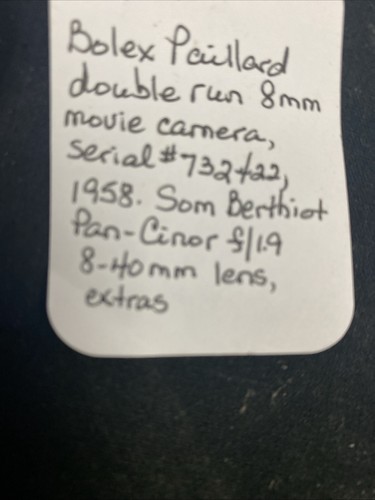 Bolex Paillard
double run 8mm
movie camera,
serial #732422,
1958. Som Berthiot
Pan-Cinor f/1.9
8-40mm lens,
extras